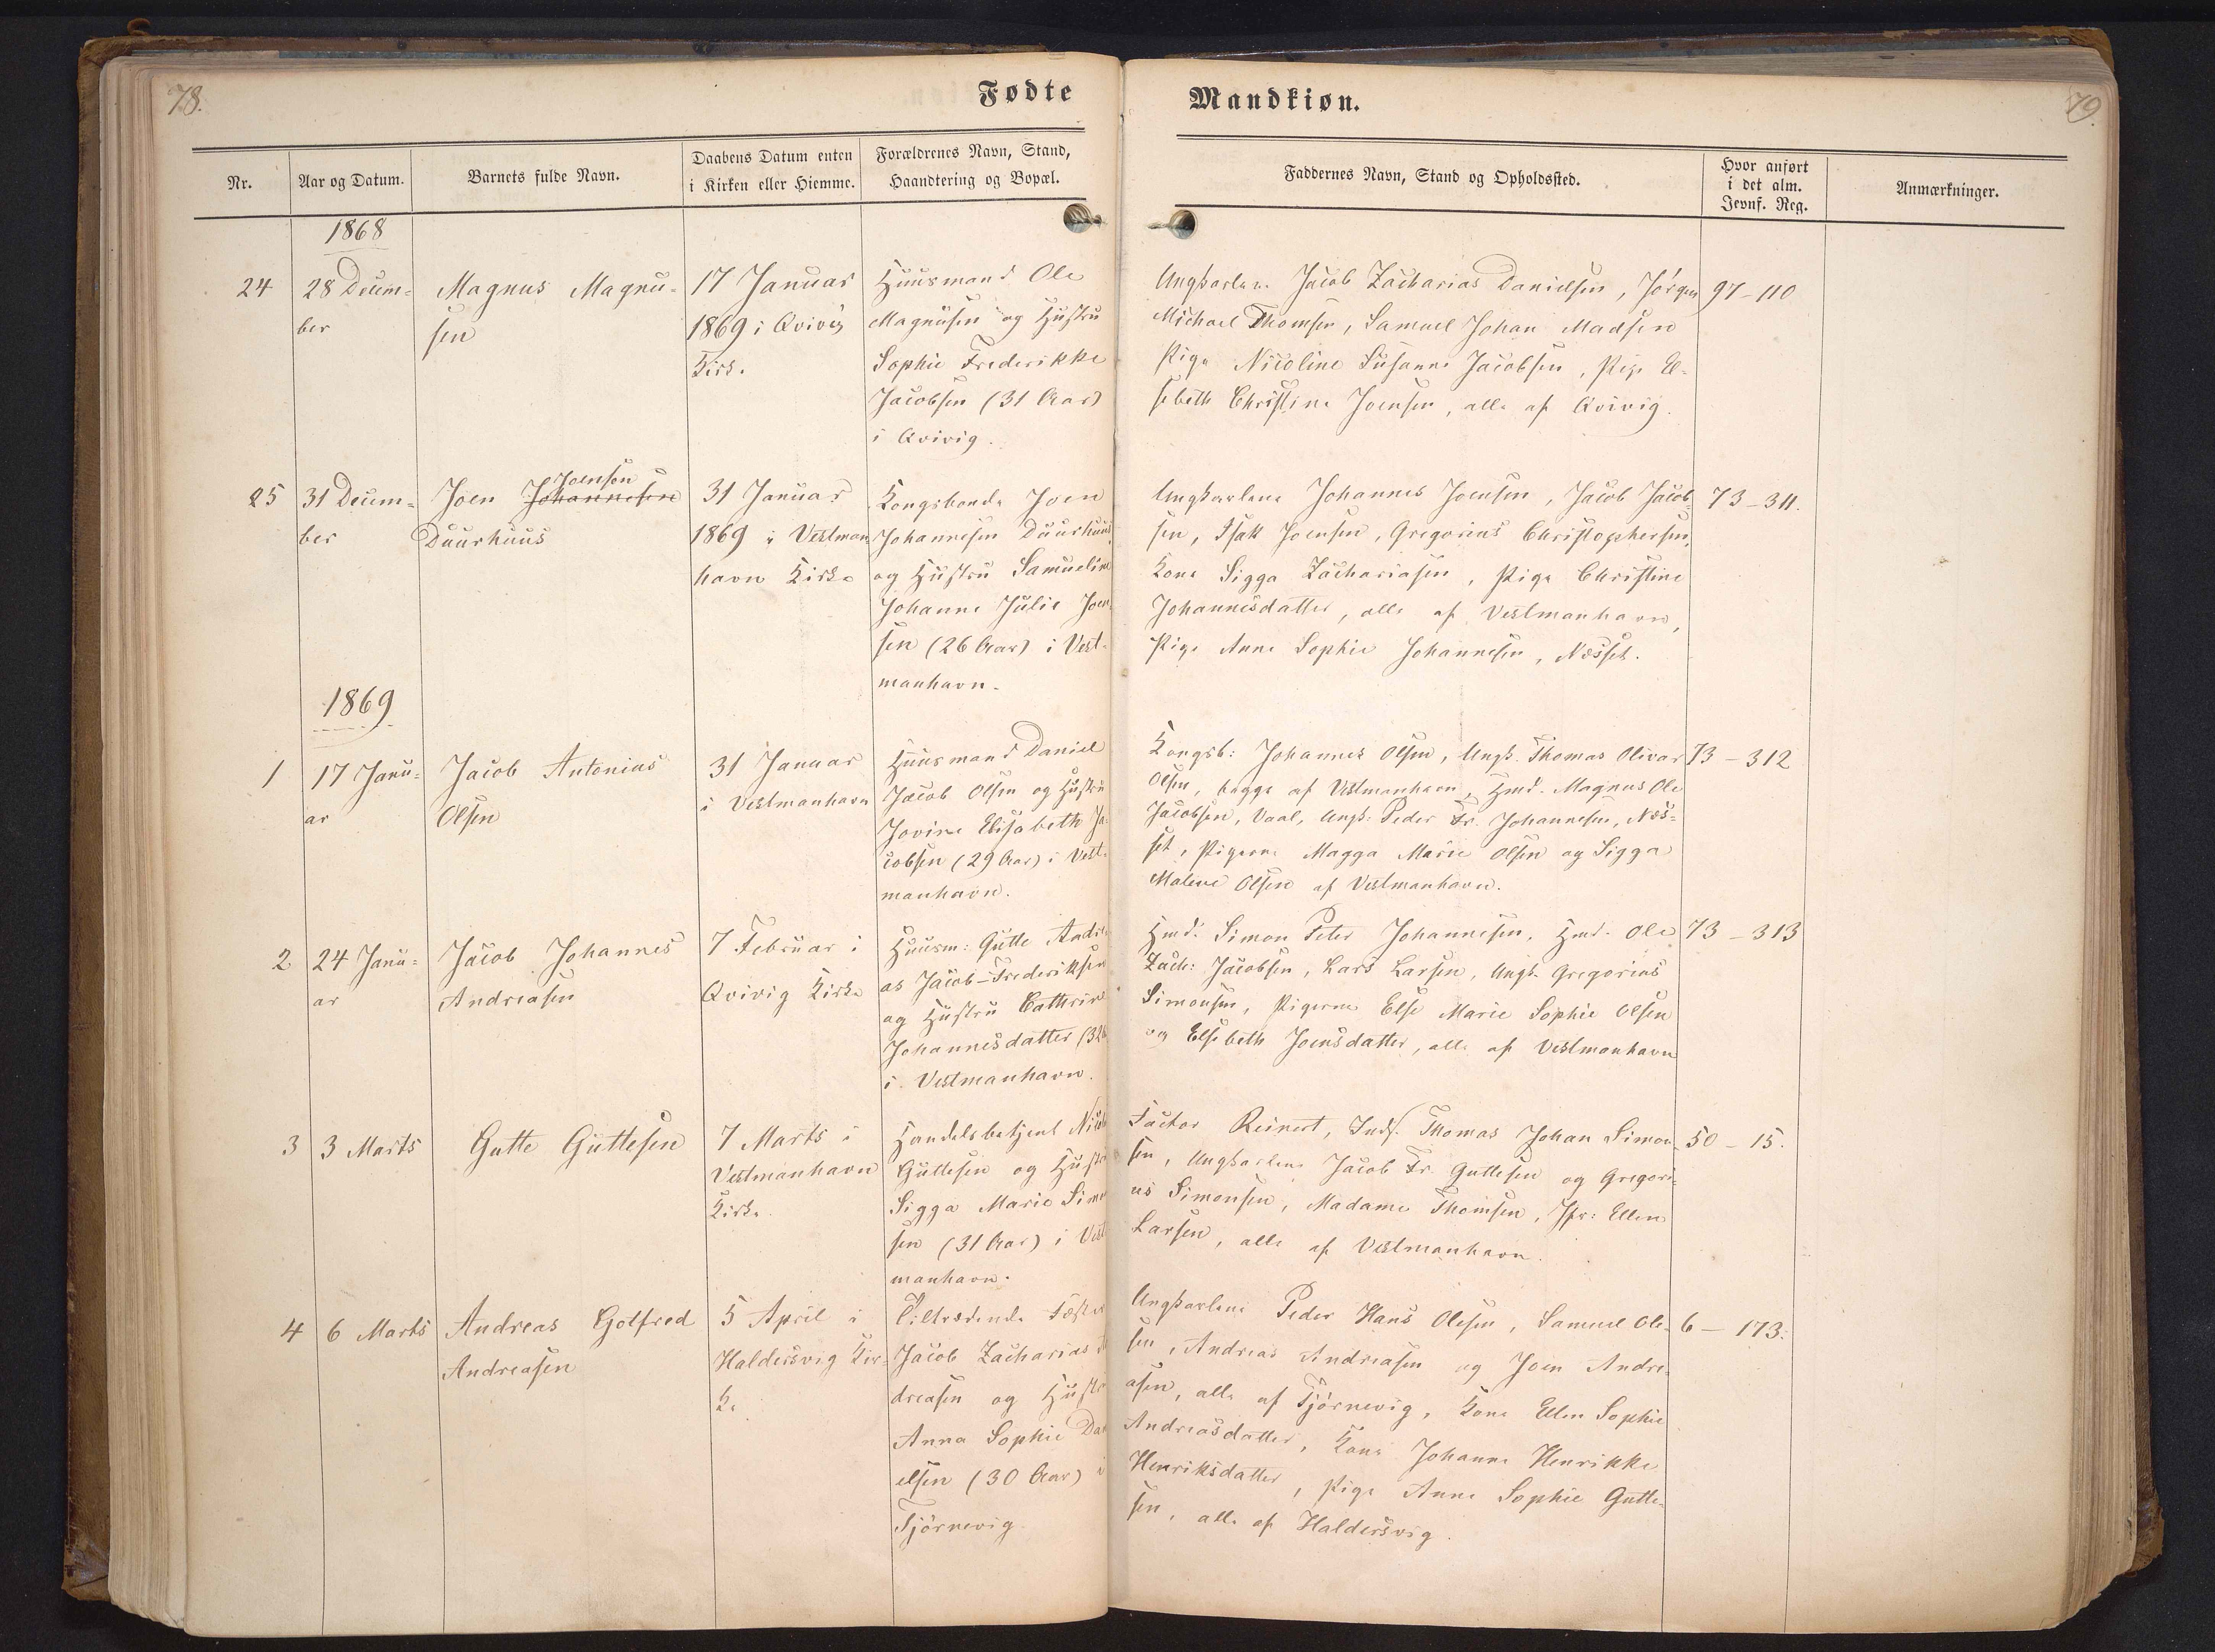 78.
Fødte
Nr.
Aar og Datum.
Barnets fulde Navn.
Daabens Datum enten
i Kirken eller Hiemme.
Forældrenes Navn, Stand,
Haandtering og Bopæl.
1868
24
28 Decem-
ber
Magnus Magnu-
sen
17 Januar
1869 i Qvivig
Kirk.
Huusmand Ole
Magnusen og Hustru
Sophie Frederikke
Jacobsen (31 Aar)
i Qvivig.
25
31 Decem-
ber
Joensen
Joen Johannesen
Duurhuus
31 Januar
1869 i Vestman
havn Kirke
Kongsbonde Joen
Johannesen Duurhuus
og Hustru Samueline
Johanne Julie Joen
sen (26 Aar) i Vest-
manhavn.
1869
1
17 Janu-
ar
Jacob Antonius
Olsen
31 Januar
i Vestmanhavn
Huusmand Daniel
Jacob Olsen og Hustru
Jovine Elisabeth Ja-
cobsen (29 Aar) i Vest-
manhavn.
2
24 Janu-
ar
Jacob Johannes
Andreasen
7 Februar i
Qvivig Kirke
Huusm: Gutte Andre
as Jacob-Frederiksen
og Hustru Cathrine
Johannesdatter (32
i Vestmanhavn.
3
3 Marts
Gutte Guttesen
7 Marts i
Vestmanhavn
Kirke.
Handelsbetjent
Guttesen og Hustru
Sigga Marie Simon
sen (31 Aar) i Vest
manhavn.
4
6 Marts
Andreas Gotfred
Andreasen
5 April i
Haldersvig Kir-
ke
Tiltrædende Fæster
Jacob Zacharias An
dreasen og Hustru
Anna Sophie Dan
elsen (30 Aar) i
Tjørnevig
Mandkiøn.
79.
Faddernes Navn, Stand og Opholdssted.
Hvor anført
i det alm.
Jevnf. Reg.
Anmærkninger.
Ungkarlene Jacob Zacharias Danielsen, Jørgen
Michael Thomsen, Samuel Johan Madsen
Pige Nicoline Susanne Jacobsen, Pige El-
sebeth Christine Joensen, alle af Qvivig.
97-110
Ungkarlene Johannes Joensen, Jacob Jacob-
sen, Isak Joensen, Gregorius Christophersen,
Kone Sigga Zachariasen, Pige Christine
Johannesdatter, alle af Vestmanhavn,
Pige Anne Sophie Johannesen, Næsset.
73-311.
Kongsb: Johannes Olsen, Ungk. Thomas Olivar
Olsen, begge af Vestmanhavn, Hmd. Magnus Ole
Jacobsen, Vaal, Ungk: Peder Fr. Johannesen, Næs-
set, Pigerne Magga Marie Olsen og Sigga
Malene Olsen af Vestmanhavn.
73-312
Hmd. Simon Peter Johannesen, Hmd. Ole
Zach: Jacobsen, Lars Larsen, Ungk. Gregorius
Simonsen, Pigerne Else Marie Sophie Olsen
og Elsebeth Joensdatter, alle af Vestmanhavn
73-313
Factor Reinert, Inds. Thomas Johan Simon-
sen, Ungkarlene Jacob Fr. Guttesen og Gregori-
us Simonsen, Madame Thomsen, Jfr: Ellen
Larsen, alle af Vestmanhavn.
50-15.
Ungkarlene Peder Hans Olesen, Samuel Ole-
sen, Andreas Andreasen og Joen Andre-
asen, alle af Tjørnevig, Kone Ellen Sophie
Andreasdatter, Kone Johanne Henrikke
Henriksdatter, Pige Anne Sophie Gutte-
sen, alle af Haldersvig.
6-173.